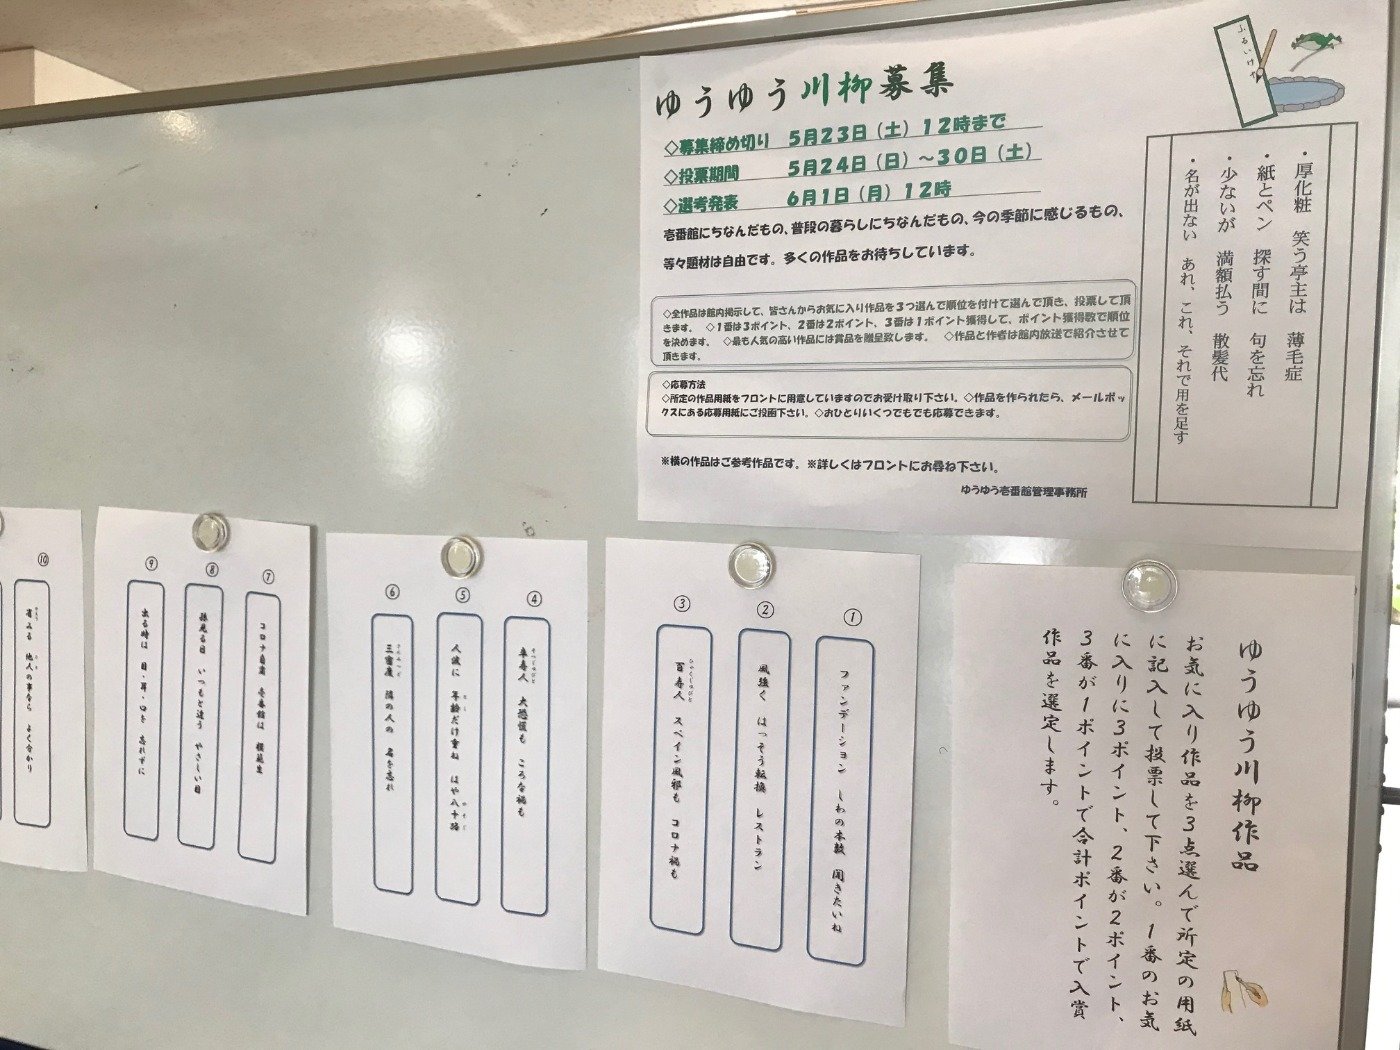 ゆうゆう川柳募集
◇募集締め切り 5月23日（土）12時まで
◇投票期間 5月24日（日）～30日（土）
◇選考発表 6月1日（月）12時
壱番館にちなんだもの、普段の暮らしにちなんだもの、今の季節に感じるもの、
等々題材は自由です。多くの作品をお待ちしています。
◇全作品は館内掲示して、皆さんからお気に入り作品を３つ選んで順位を付けて選んで頂き、投票して頂
きます。 ◇１番は３ポイント、２番は２ポイント、３番は１ポイント獲得して、ポイント獲得数で順位
を決めます。 ◇最も人気の高い作品には賞品を贈呈致します。 ◇作品と作者は館内放送で紹介させて
頂きます。
◇応募方法
◇所定の作品用紙をフロントに用意していますのでお受け取り下さい。◇作品を作られたら、メールボッ
クスにある応募用紙にご投函下さい。◇おひとりいくつでもでも応募できます。
※横の作品はご参考作品です。※詳しくはフロントにお尋ね下さい。
ゆうゆう壱番館管理事務所
ふるいけや
・厚化粧 笑う亭主は 薄毛症
・紙とペン 探す間に 句を忘れ
・少ないが 満額払う 散髪代
・名が出ない あれ、これ、それで用を足す
ゆうゆう川柳作品
お気に入り作品を３点選んで所定の用紙
に記入して投票して下さい。１番のお気
に入りに３ポイント、２番が２ポイント、
３番が１ポイントで合計ポイントで入賞
作品を選定します。
① ファンデーション しわの本数 聞きたいね
② 風強く はっそう転換 レストラン
③ 百寿人 スペイン風邪も コロナ禍も
④ 卒寿人 大恐慌も ころな禍も
⑤ 人波に 年齢だけ重ね はや八十路
⑥ 三密度 隣の人の 名を忘れ
⑦ コロナ自粛 壱番館は 模範生
⑧ 孫見る目 いつもと違う やさしい目
⑨ 出る時は 目・耳・口を 忘れずに
⑩ 省みる 他人の事なら よく分かり